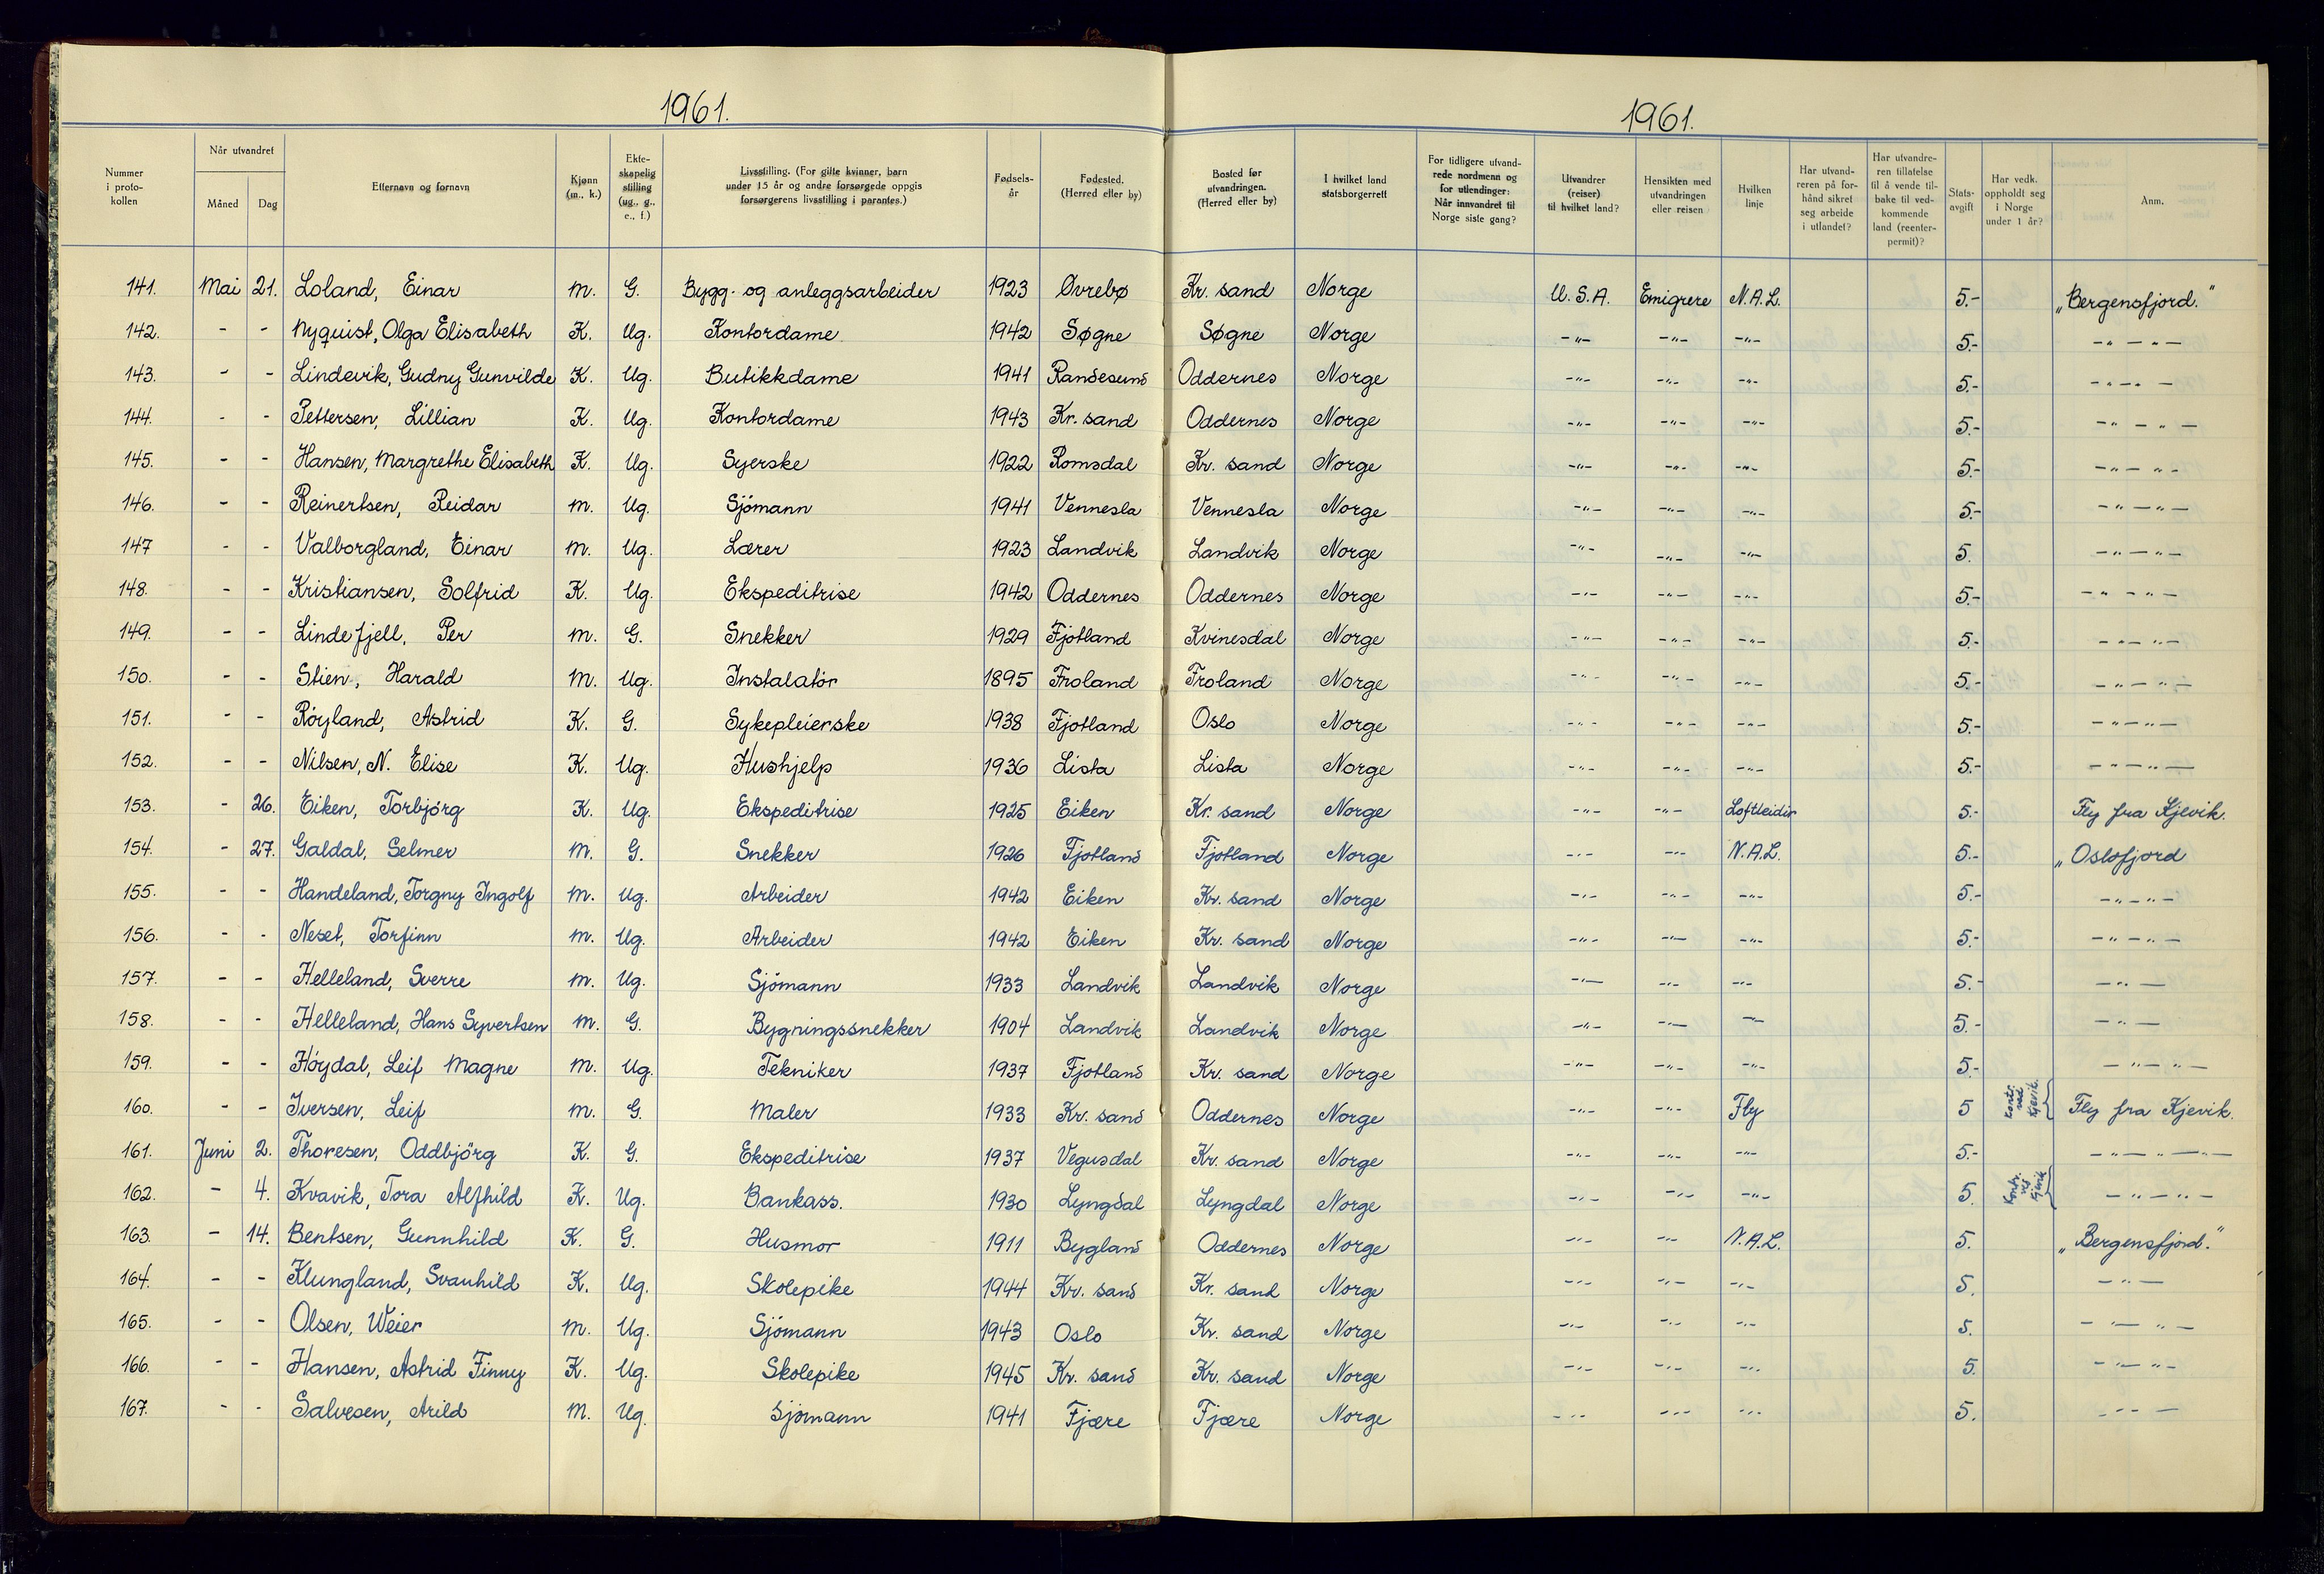 1961. 1961.
Nummer i proto- kollen | Når utvandret | Måned | Dag | Etternavn og fornavn | Kjønn (m., k.) | Ekte- skapelig stilling (ug., g., e., f.) | Livsstilling. (For gifte kvinner, barn under 15 år og andre forsørgede oppgis forsørgerens livsstilling i parantes.) | Fødsels- år | Fødested. (Herred eller by) | Bosted før utvandringen. (Herred eller by) | I hvilket land statsborgerrett | For tidligere utvand- rede nordmenn og for utlendinger: Når innvandret til Norge siste gang? | Utvandrer (reiser) til hvilket land? | Hensikten med utvandringen eller reisen | Hvilken linje | Har utvand- reren på for- hånd sikret seg arbeide i utlandet? | Har utvandre- ren tillatelse til å vende til- bake til ved- kommende land (reenter- permit)? | Stats- avgift | Har vedk. oppholdt seg i Norge under 1 år? | Anm.
141. Mai 21. Loland, Einar m. G. Bygg- og anleggsarbeider 1923 Øvrebø Kr. sand Norge U.S.A. Emigrere N.A.L. 5.- "Bergensfjord."
142. - - Nyquist, Olga Elisabeth K. Ug. Kontordame 1942 Søgne Søgne Norge -"- -"- -"- 5.- -"-"-
143. - - Lindevik, Gudny Gunvilde K. Ug. Butikkdame 1941 Randesund Oddernes Norge -"- -"- -"- 5.- -"-"-
144. - - Pettersen, Lillian K. Ug. Kontordame 1943 Kr. sand Oddernes Norge -"- -"- -"- 5.- -"-"-
145. - - Hansen, Margrethe Elisabeth K. Ug. Syerske 1922 Romsdal Kr. sand Norge -"- -"- -"- 5.- -"-"-
146. - - Reinertsen, Reidar m. Ug. Sjömann 1941 Vennesla Vennesla Norge -"- -"- -"- 5.- -"-"-
147 - - Valborgland, Einar m. Ug. Lærer 1923 Landvik Landvik Norge -"- -"- -"- 5. -"-"-
148. - - Kristiansen, Solfrid K. Ug. Ekspeditrise 1942 Oddernes Oddernes Norge -"- -"- -"- 5.- -"-"-
149. - - Lindefjell, Per m. G. Snekker 1929 Fjotland Kvinesdal Norge -"- -"- -"- 5.- -"-"-
150. - - Stien, Harald m. Ug. Instalatör 1895 Froland Froland Norge -"- -"- -"- 5.- -"-"-
151. - - Röyland, Astrid K. G. Sykepleierske 1938 Fjotland Oslo Norge -"- -"- -"- 5.- -"-"-
152. - - Nilsen, N. Elise K. Ug. Hushjelp 1936 Lista Lista Norge -"- -"- -"- 5.- -"-"-
153. - 26. Eiken, Torbjörg K. Ug. Ekspeditrise 1925 Eiken Kr. sand Norge -"- -"- Loftleidir 5.- Fly fra Kjevik.
154. - 27. Galdal, Selmer m. G. Snekker 1926 Fjotland Fjotland Norge -"- -"- N.A.L. 5.- "Oslofjord
155. - - Handeland, Torgny Ingolf m. Ug. Arbeider 1942 Eiken Kr. sand Norge -"- -"- -"- 5.- -"-"-
156. - - Neset, Torfinn m. Ug. Arbeider 1942 Eiken Kr. sand Norge -"- -"- -"- 5.- -"-"-
157. - - Helleland, Sverre m. Ug. Sjömann 1933 Landvik Landvik Norge -"- -"- -"- 5.- -"-
158. - - Helleland, Hans Syvertsen m. G. Bygningssnekker 1904 Landvik Landvik Norge -"- -"- -"- 5.- -"-
159. - - Höydal, Leif Magne m. Ug. Tekniker 1937 Fjotland Kr. sand Norge -"- -"- -"- 5.- -"-"-
160. - - Iversen, Leif m. G. Maler 1933 Kr. sand Oddernes Norge -"- -"- Fly 5 Kjevik. Fly fra Kjevik.
161. Juni 2. Thoresen, Oddbjörg K. G. Ekspeditrise 1937 Vegusdal Kr. sand Norge -"- -"- -"- 5.- -"-"-"-
162. - 4. Kvavik, Tora Alfhild K. Ug. Bankass. 1930 Lyngdal Lyngdal Norge -"- -"- -"- 5. -"-"-
163. - 14. Bentsen, Gunnhild K. G. Husmor 1911 Bygland Oddernes Norge -"- -"- N.A.L. 5. "Bergensfjord."
164. - - Klungland, Svanhild K. Ug. Skolepike 1944 Kr. sand Kr. sand Norge -"- -"- -"- 5. -"-
165. - - Olsen, Weier m. Ug. Sjömann 1943 Oslo Kr. sand Norge -"- -"- -"- 5. -"-"-
166. - - Hansen, Astrid Finny K. Ug. Skolepike 1945 Kr. sand Kr. sand Norge -"- -"- -"- 5. -"-"-
167. - - Salvesen, Arild m. Ug. Sjömann 1941 Fjære Fjære Norge -"- -"- -"- 5. -"-